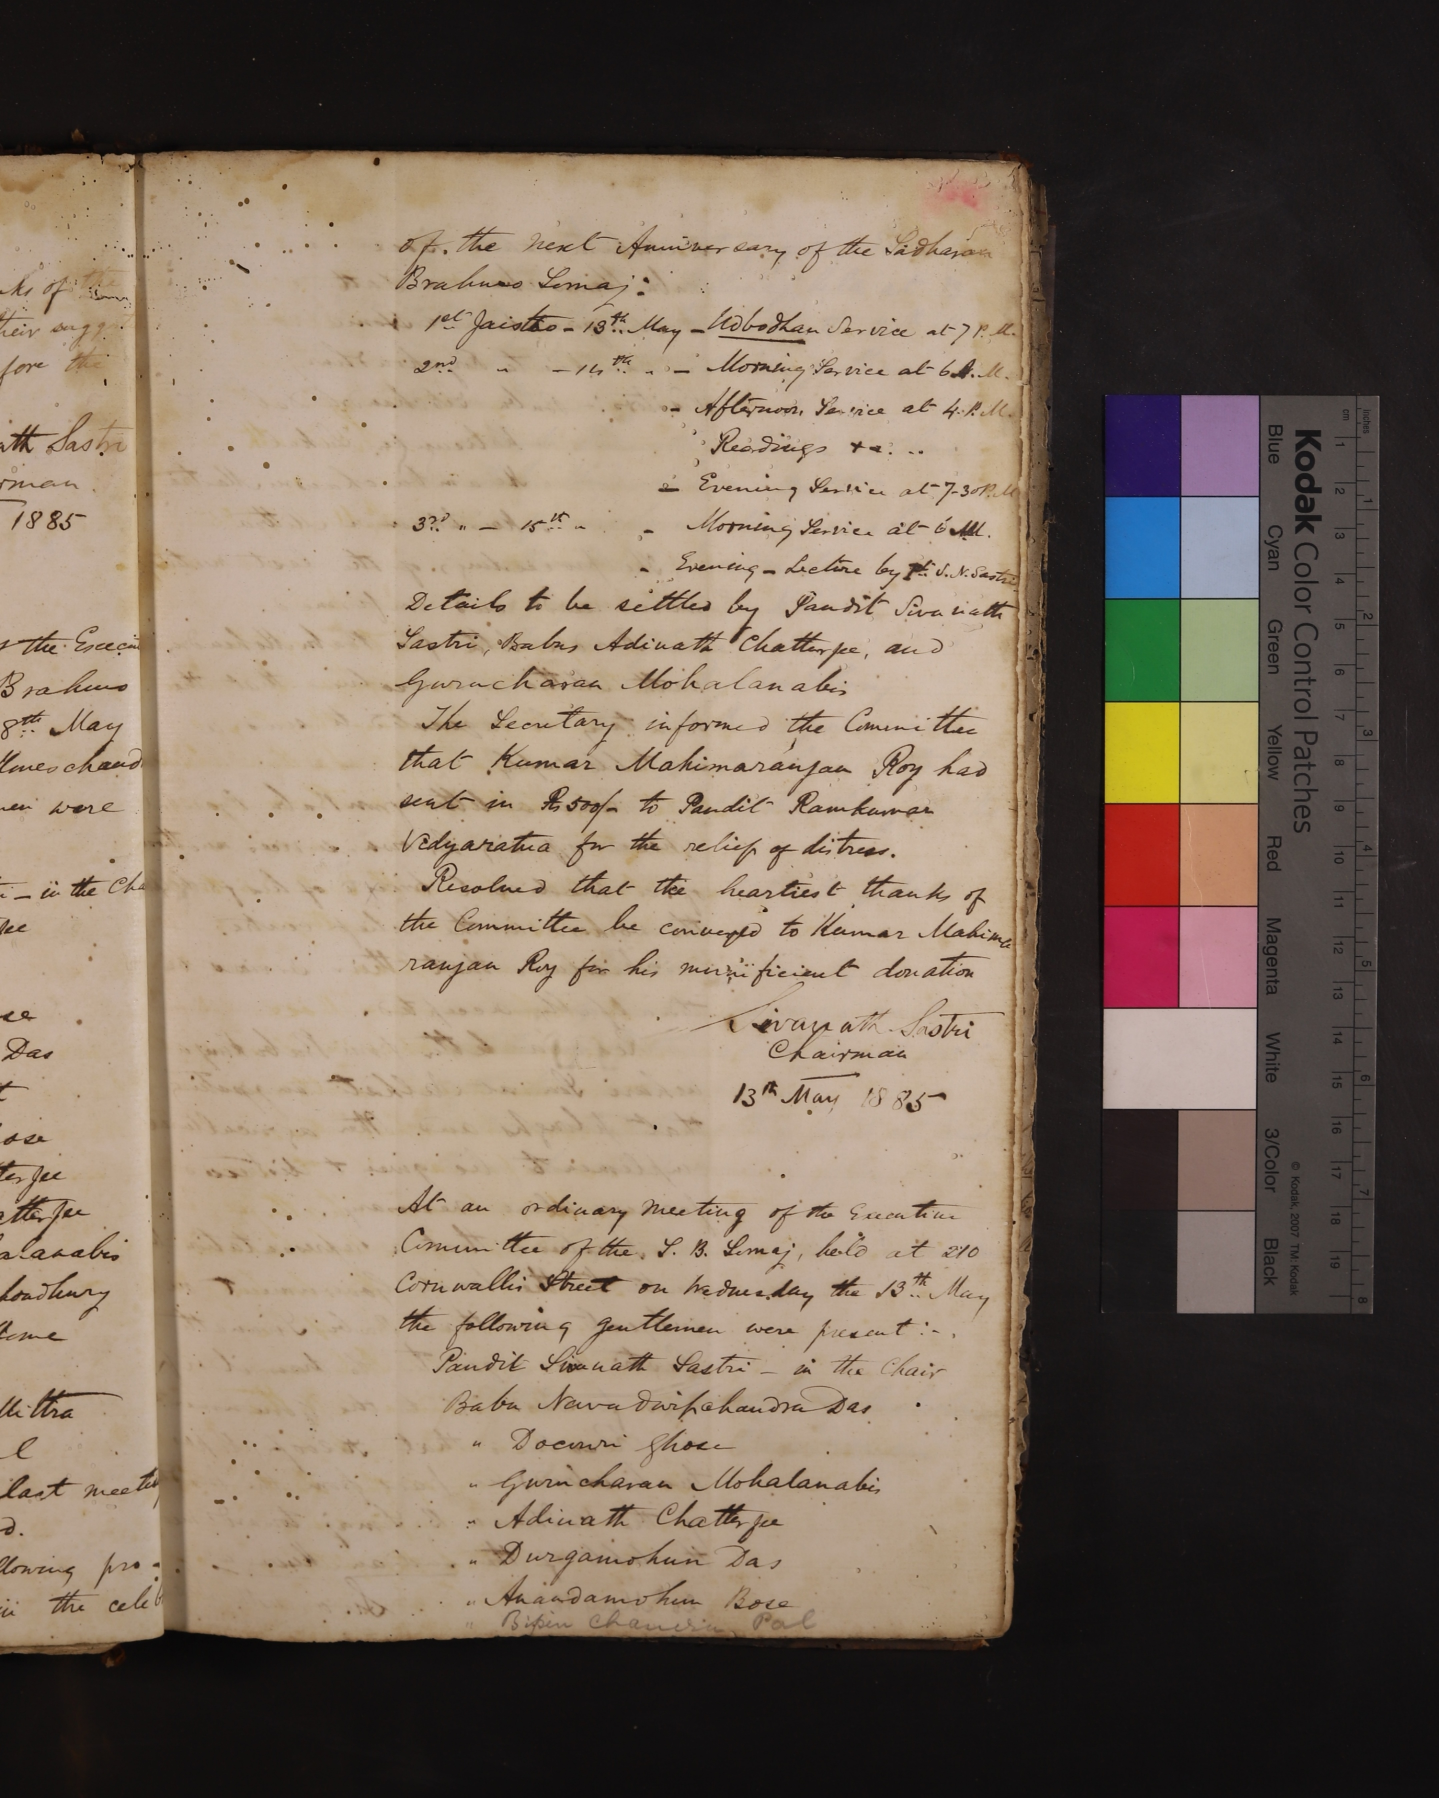 ks of the
their sugg
fore the
ath Sastri
rman
1885
s the Execu
Brahmo
8th May
Umeschand
men were
in the Cha
jee
se
Das
t
ose
terjee
atterjee
alanabis
houdhury
Home
Mittra
l
last meeting
d.
llowing pro-
in the celeb
of the next Anniversary of the Sadharan
Brahmo Somaj:
1st Jaisto - 13th May - Udbodhan Service at 7 P.M.
2nd " - 14th " - Morning Service at 6 A.M.
- Afternoon Service at 4. P.M.
Readings &c. ..
- Evening Service at 7-30 P.M
3rd " - 15th " - Morning Service at 6 AM.
- Evening - Lecture by Pt. S. N. Sastri
Details to be settled by Pandit Sivanath
Sastri, Babus Adinath Chatterjee, and
Gurucharan Mohalanabis
The Secretary informed the Committee
that Kumar Mahimaranjan Roy had
sent in Rs 500/- to Pandit Ramkumar
Vidyaratna for the relief of distress.
Resolved that the heartiest thanks of
the Committee be conveyed to Kumar Mahima
ranjan Roy for his munificient donation
Sivanath Sastri
Chairman
13th May 1885
At an ordinary meeting of the Executive
Committee of the S. B. Somaj, held at 210
Cornwallis Street on Wednesday the 13th May
the following gentlemen were present :-
Pandit Sivanath Sastri - in the Chair
Babu Navadwipchandra Das
" Docowri Ghose
" Gurucharan Mohalanabis
" Adinath Chatterjee
" Durgamohun Das
" Anandamohun Bose
" Bipin Chandra Pal
Kodak Color Control Patches
Blue Cyan Green Yellow Red Magenta White 3/Color Black
© Kodak, 2007 TM: Kodak
inches 1 2 3 4 5 6 7 8
cm 1 2 3 4 5 6 7 8 9 10 11 12 13 14 15 16 17 18 19